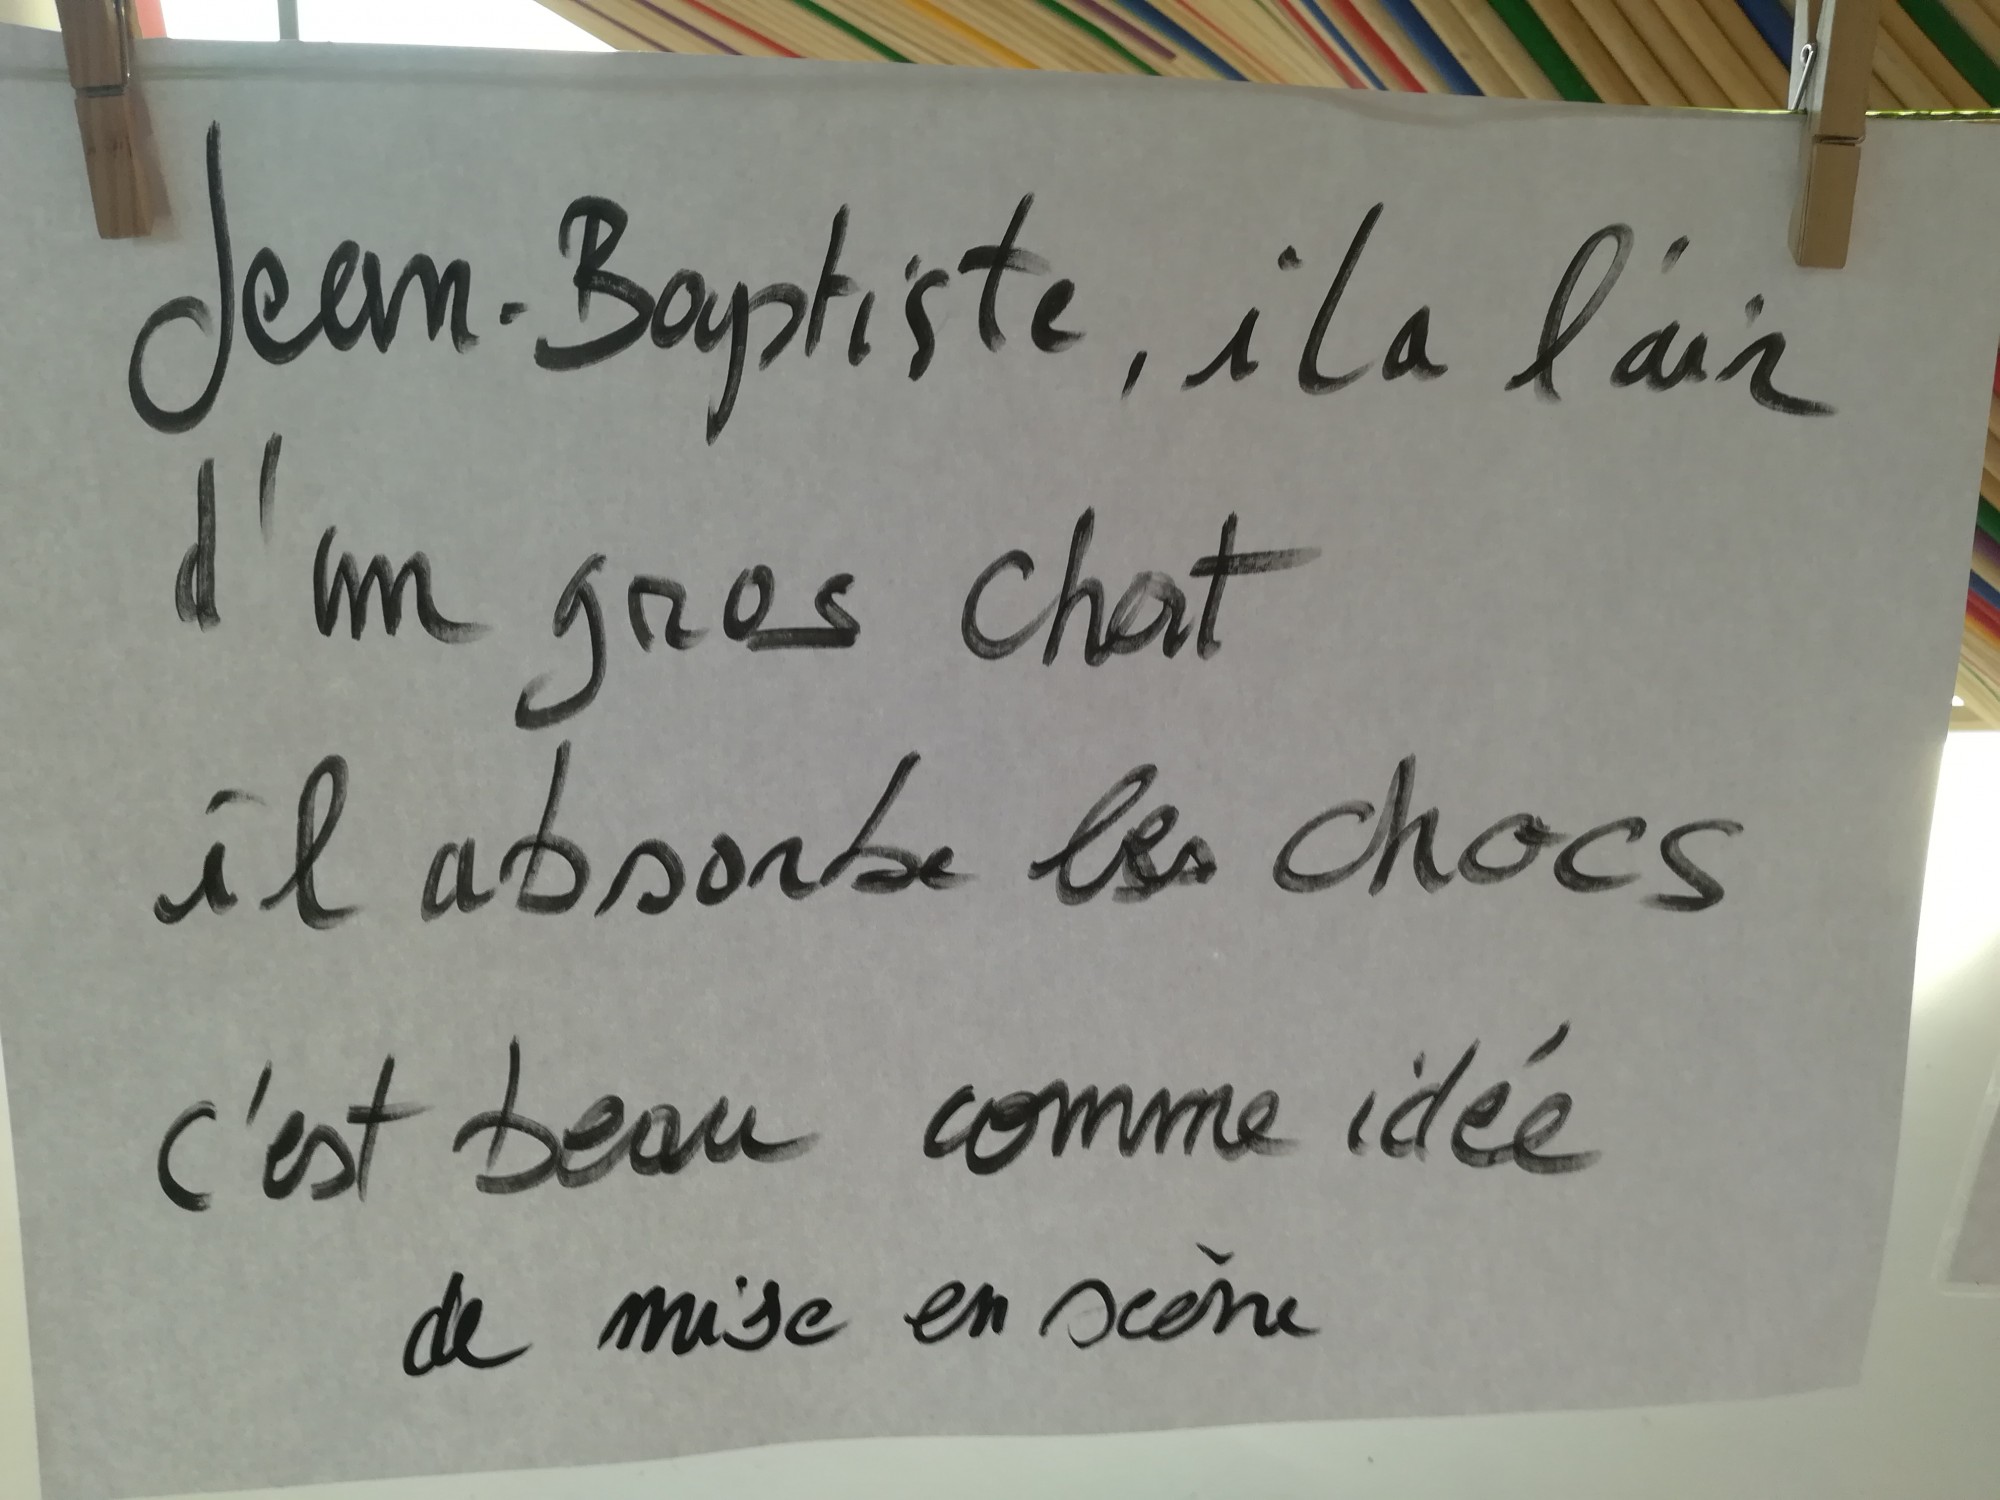 Jean-Baptiste, il a l'air
d'un gros chat
il absorbe les chocs
c'est beau comme idée
de mise en scène